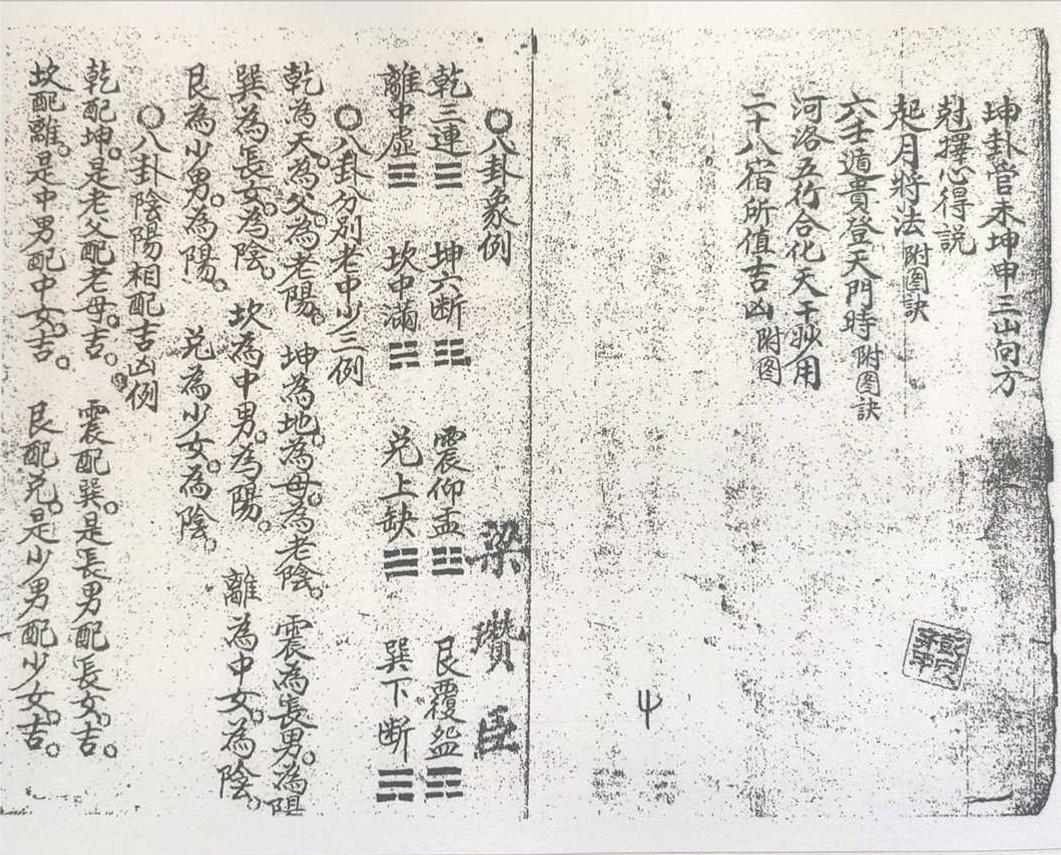 坤卦管未坤申三山向方
尅擇心得説
起月將法 附图訣
六壬遁貴登天門時 附图訣
河洛五行合化天干妙用
二十八宿所值吉凶 附图
梁瓚臣
〇八卦象例
乾三連☰ 坤六断☷ 震仰盂☳ 艮覆盌☶
離中虛☲ 坎中滿☵ 兑上缺☱ 巽下断☴
〇八卦分别老中少三例
乾為天。為父。為老陽。 坤為地。為母。為老陰。 震為長男。為陽
巽為長女。為陰。 坎為中男。為陽。 離為中女。為陰。
艮為少男。為陽。 兑為少女。為陰。
〇八卦陰陽相配吉凶例
乾配坤。是老父配老母。吉。 震配巽。是長男配長女。吉。
坎配離。是中男配中女。吉。 艮配兑。是少男配少女。吉。